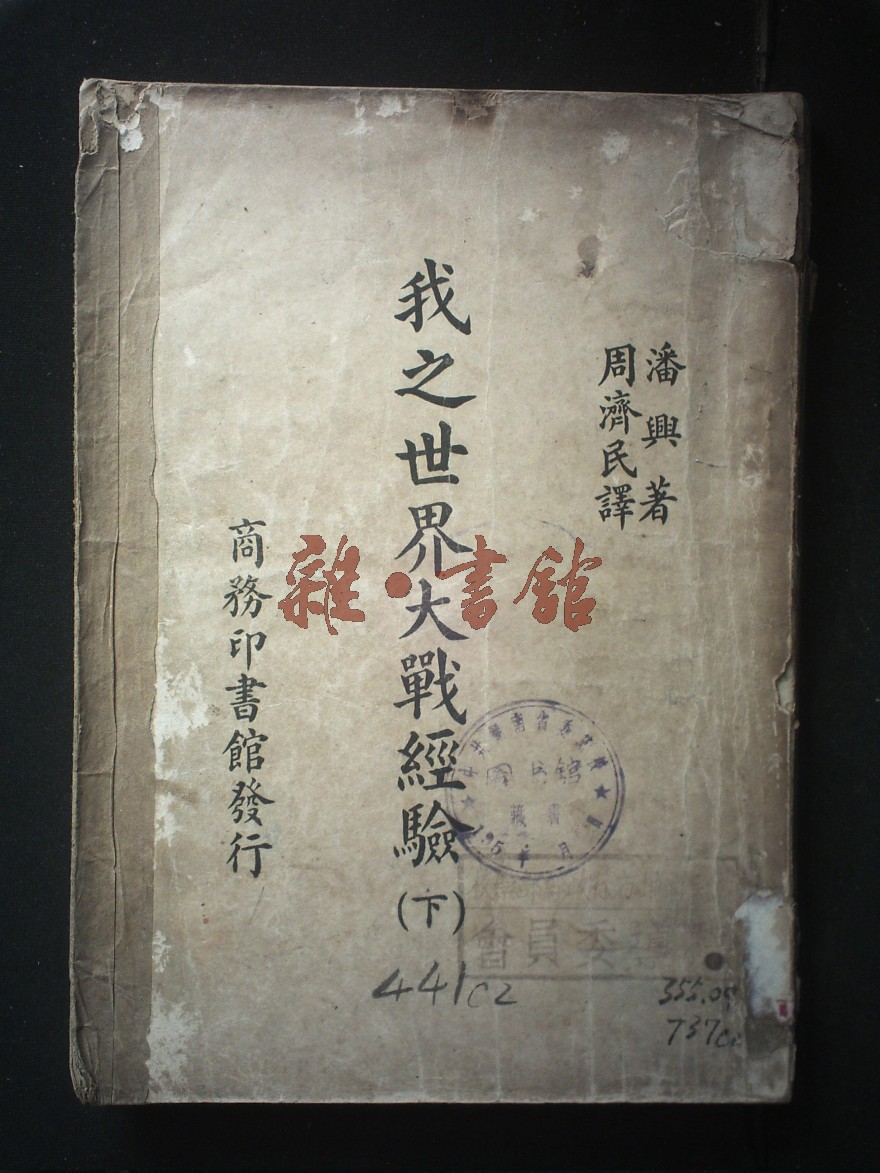 潘興著
周濟民譯
我之世界大戰經驗(下)
商務印書館發行
雜·書館
館
藏書
195 年 月 日
會員委
441 C2
355.09
737